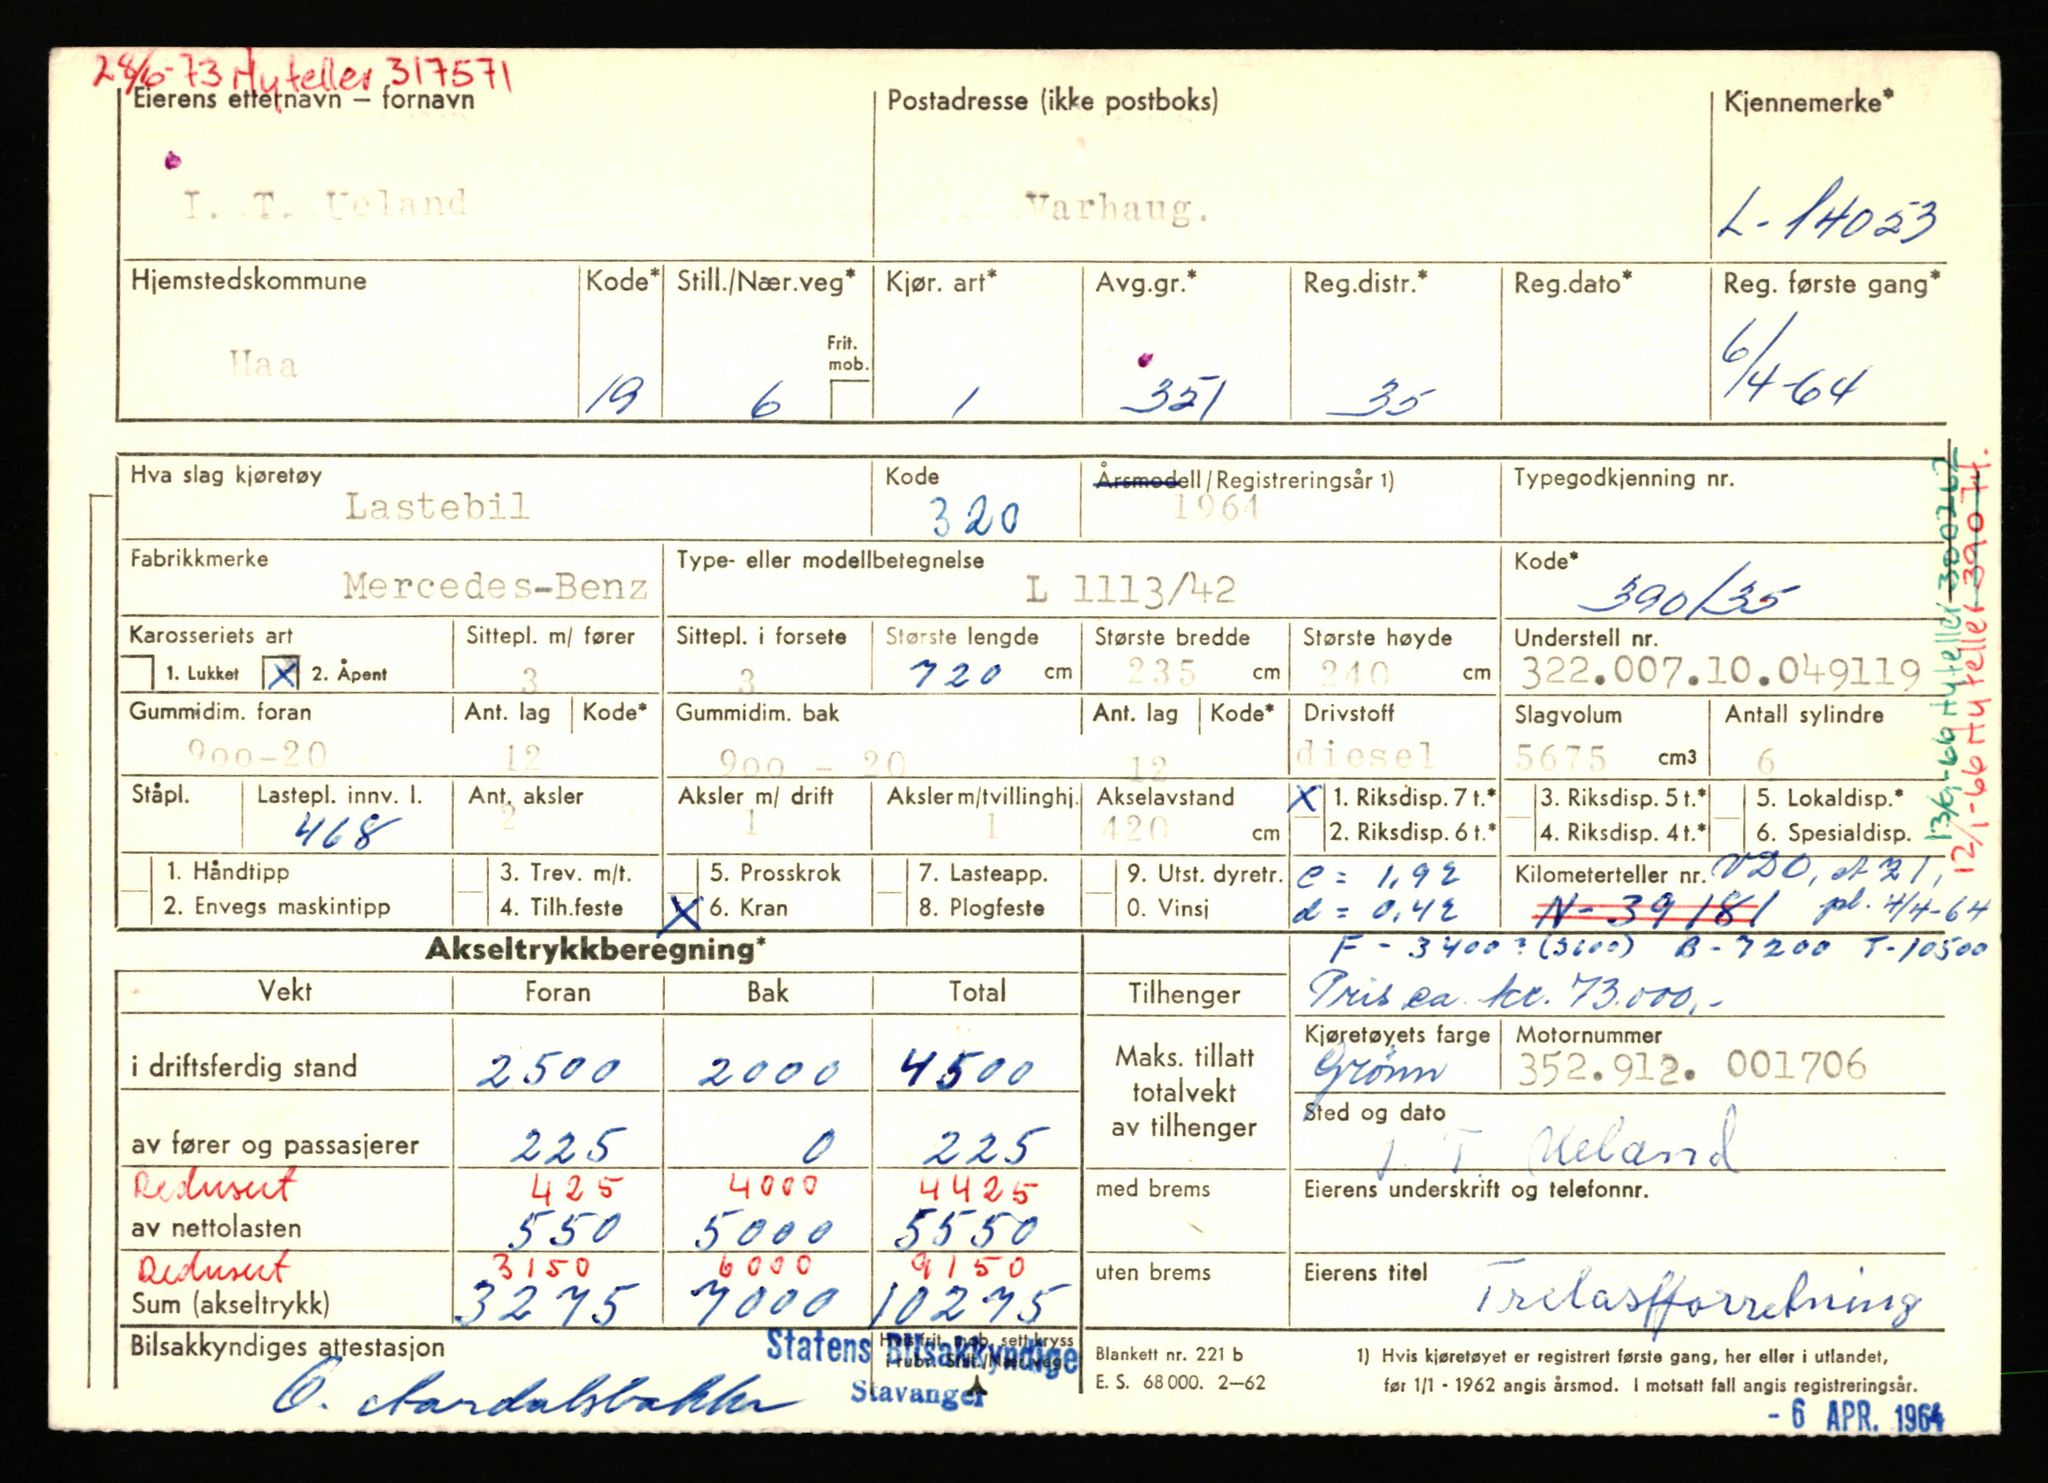 28/6-73 Ny teller 317571
Eierens etternavn – fornavn
Postadresse (ikke postboks)
Kjennemerke*
I. T. Ueland
Varhaug.
L-14053
Hjemstedskommune
Kode*
Still./Nær.veg*
Kjør. art*
Avg.gr.*
Reg.distr.*
Reg.dato*
Reg. første gang*
Haa
19
6
Frit.
mob.
1
351
35
6/4-64
Hva slag kjøretøy
Lastebil
Kode
320
Årsmodell/Registreringsår 1)
1964
Typegodkjenning nr.
Fabrikkmerke
Mercedes-Benz
Type- eller modellbetegnelse
L 1113/42
Kode*
390/35
Karosseriets art
1. Lukket X 2. Åpent
Sittepl. m/ fører
3
Sittepl. i forsete
3
Største lengde
720 cm
Største bredde
235 cm
Største høyde
240 cm
Understell nr.
322.007.10.049119
Gummidim. foran
900-20
Ant. lag
12
Kode*
Gummidim. bak
900 - 20
Ant. lag
12
Kode*
Drivstoff
diesel
Slagvolum
5675 cm3
Antall sylindre
6
Ståpl.
Lastepl. innv. l.
468
Ant. aksler
2
Aksler m/ drift
1
Aksler m/tvillinghj.
1
Akselavstand
420 cm
X 1. Riksdisp. 7 t.*
2. Riksdisp. 6 t.*
3. Riksdisp. 5 t.*
4. Riksdisp. 4 t.*
5. Lokaldisp.*
6. Spesialdisp.
1. Håndtipp
2. Envegs maskintipp
3. Trev. m/t.
4. Tilh.feste
5. Prosskrok
X 6. Kran
7. Lasteapp.
8. Plogfeste
9. Utst. dyretr.
0. Vinsj
c = 1,92
d = 0,42
Kilometerteller nr. VDO, st 21,
N-39181 pl. 4/4-64
13/9-66 Ny teller 300262
12/1-66 Ny teller 39074.
F - 3400 ? (3600) B - 7200 T-10500
Akseltrykkberegning*
Vekt
Foran
Bak
Total
i driftsferdig stand
2500
2000
4500
av fører og passasjerer
225
0
225
Redusert 425 4000 4425
av nettolasten
550
5000
5550
Redusert 3150 6000 9150
Sum (akseltrykk)
3275
7000
10275
Tilhenger
Pris ca. kr. 73.000,-
Maks. tillatt
totalvekt
av tilhenger
Kjøretøyets farge
Grønn
Motornummer
352.912. 001706
Sted og dato
I. T. Ueland
med brems
Eierens underskrift og telefonnr.
uten brems
Eierens titel
Trelastforretning
Bilsakkyndiges attestasjon
Hvis frit. mob. sett kryss
i rubr. Still./Nær.veg
Statens Bilsakkyndige
Stavanger
Blankett nr. 221 b
E. S. 68 000. 2–62
1) Hvis kjøretøyet er registrert første gang, her eller i utlandet,
før 1/1 - 1962 angis årsmod. I motsatt fall angis registreringsår.
- 6 APR. 1964